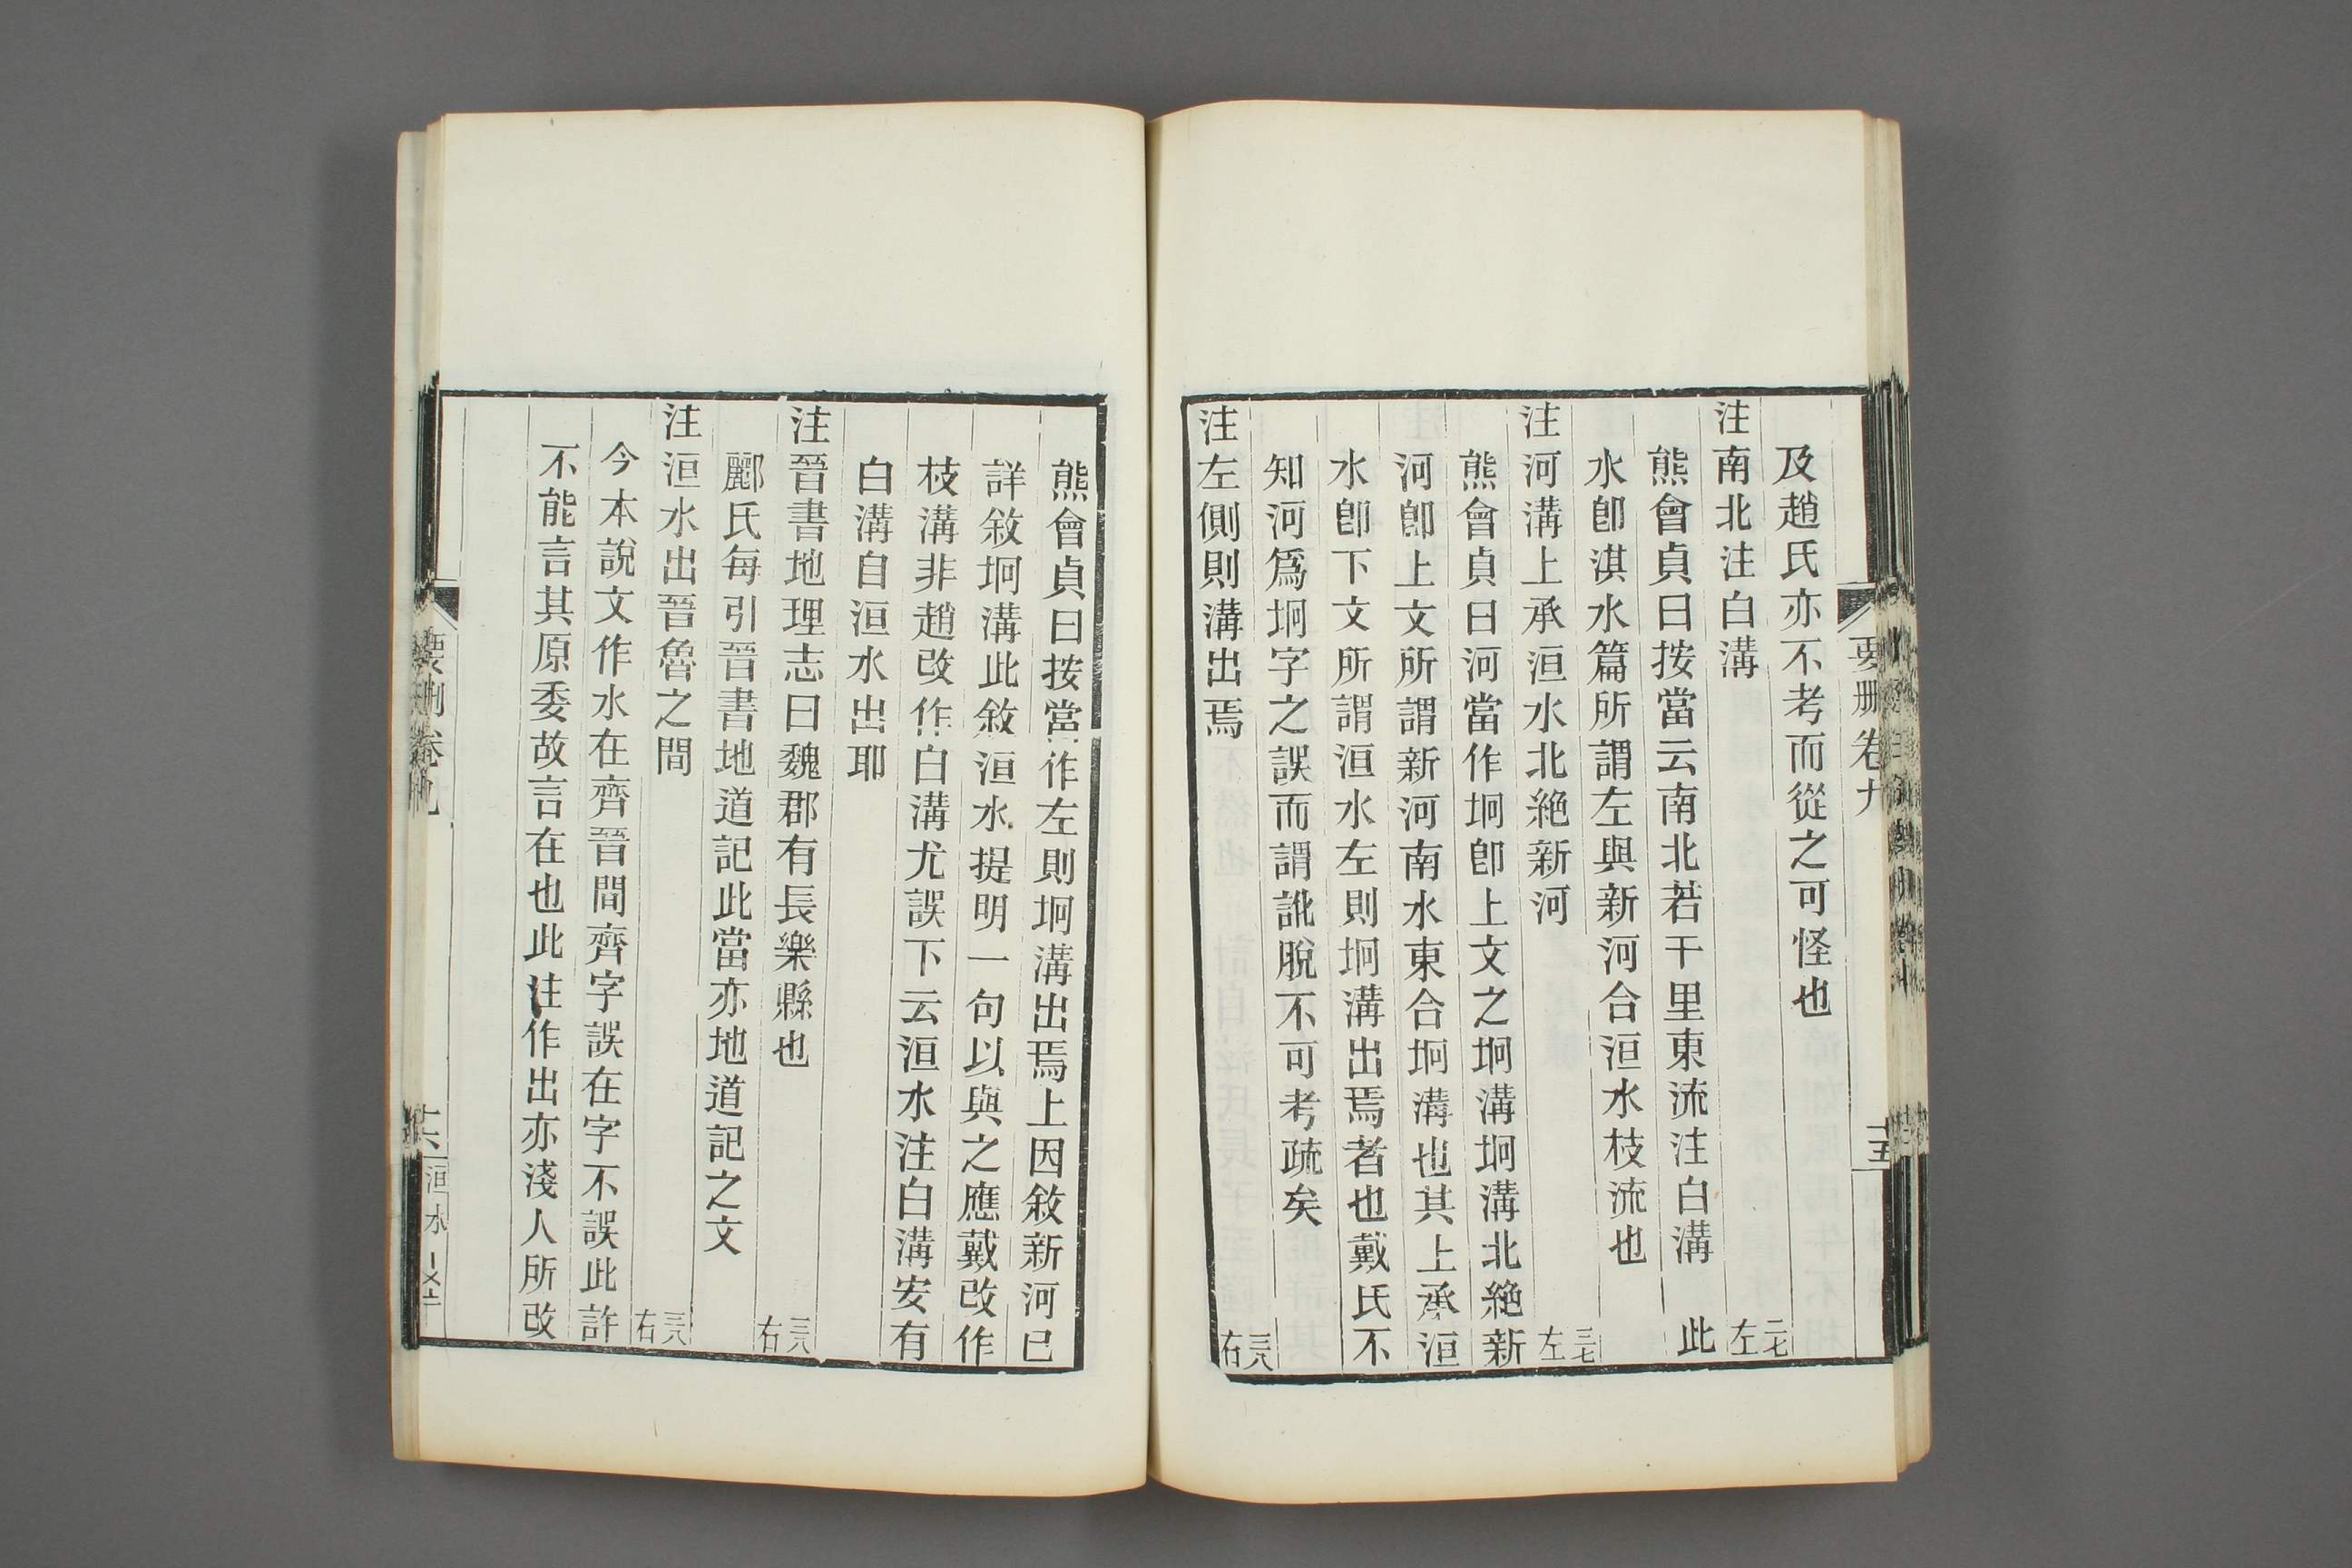 及趙氏亦不考而從之可怪也
注南北注白溝 二七左
熊會貞曰按當云南北若干里東流注白溝 此
水卽淇水篇所謂左與新河合洹水枝流也
注河溝上承洹水北絶新河 二七左
熊會貞曰河當作坰卽上文之坰溝坰溝北絶新
河卽上文所謂新河南水東合坰溝也其上承洹
水卽下文所謂洹水左則坰溝出焉者也戴氏不
知河爲坰字之誤而謂訛脫不可考疏矣
注左側則溝出焉 二八右
要删卷九
十五
熊會貞曰按當作左則坰溝出焉上因敘新河已
詳敘坰溝此敘洹水提明一句以與之應戴改作
枝溝非趙改作白溝尤誤下云洹水注白溝安有
白溝自洹水出耶
注晉書地理志曰魏郡有長樂縣也 二八右
酈氏每引晉書地道記此當亦地道記之文
注洹水出晉魯之間 二八右
今本說文作水在齊晉間齊字誤在字不誤此許
不能言其原委故言在也此注作出亦淺人所改
要删卷九
十六
洹水